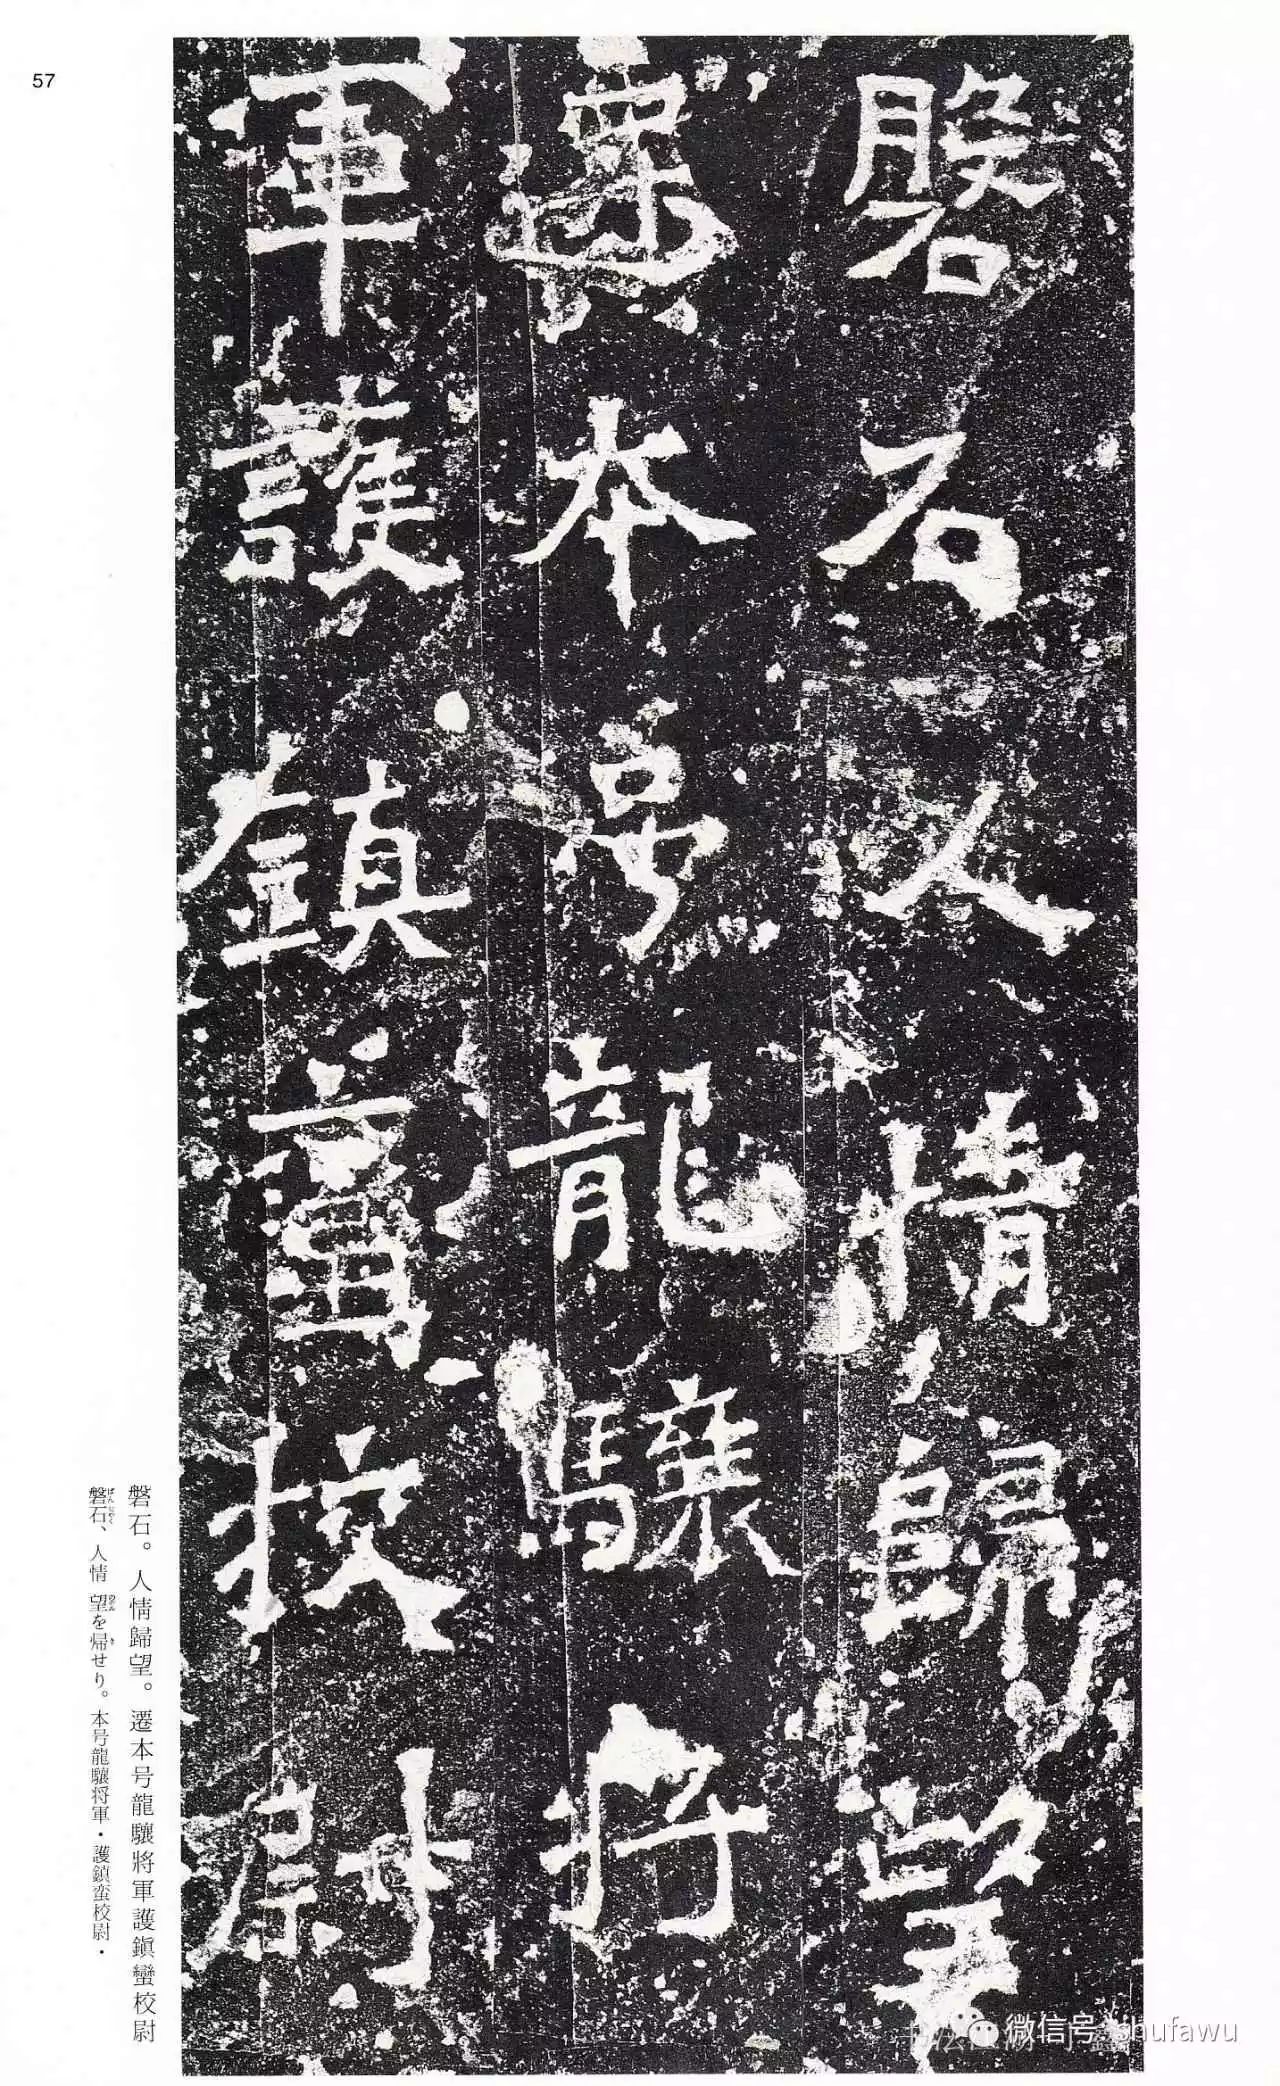 57
磐石人情歸望
遷本号龍驤將
軍護鎮蠻校尉
磐石。人情歸望。遷本号龍驤將軍護鎭蠻校尉
磐石、人情望を帰せり。本号龍驤将軍・護鎮蛮校尉・
微信号: shufawu